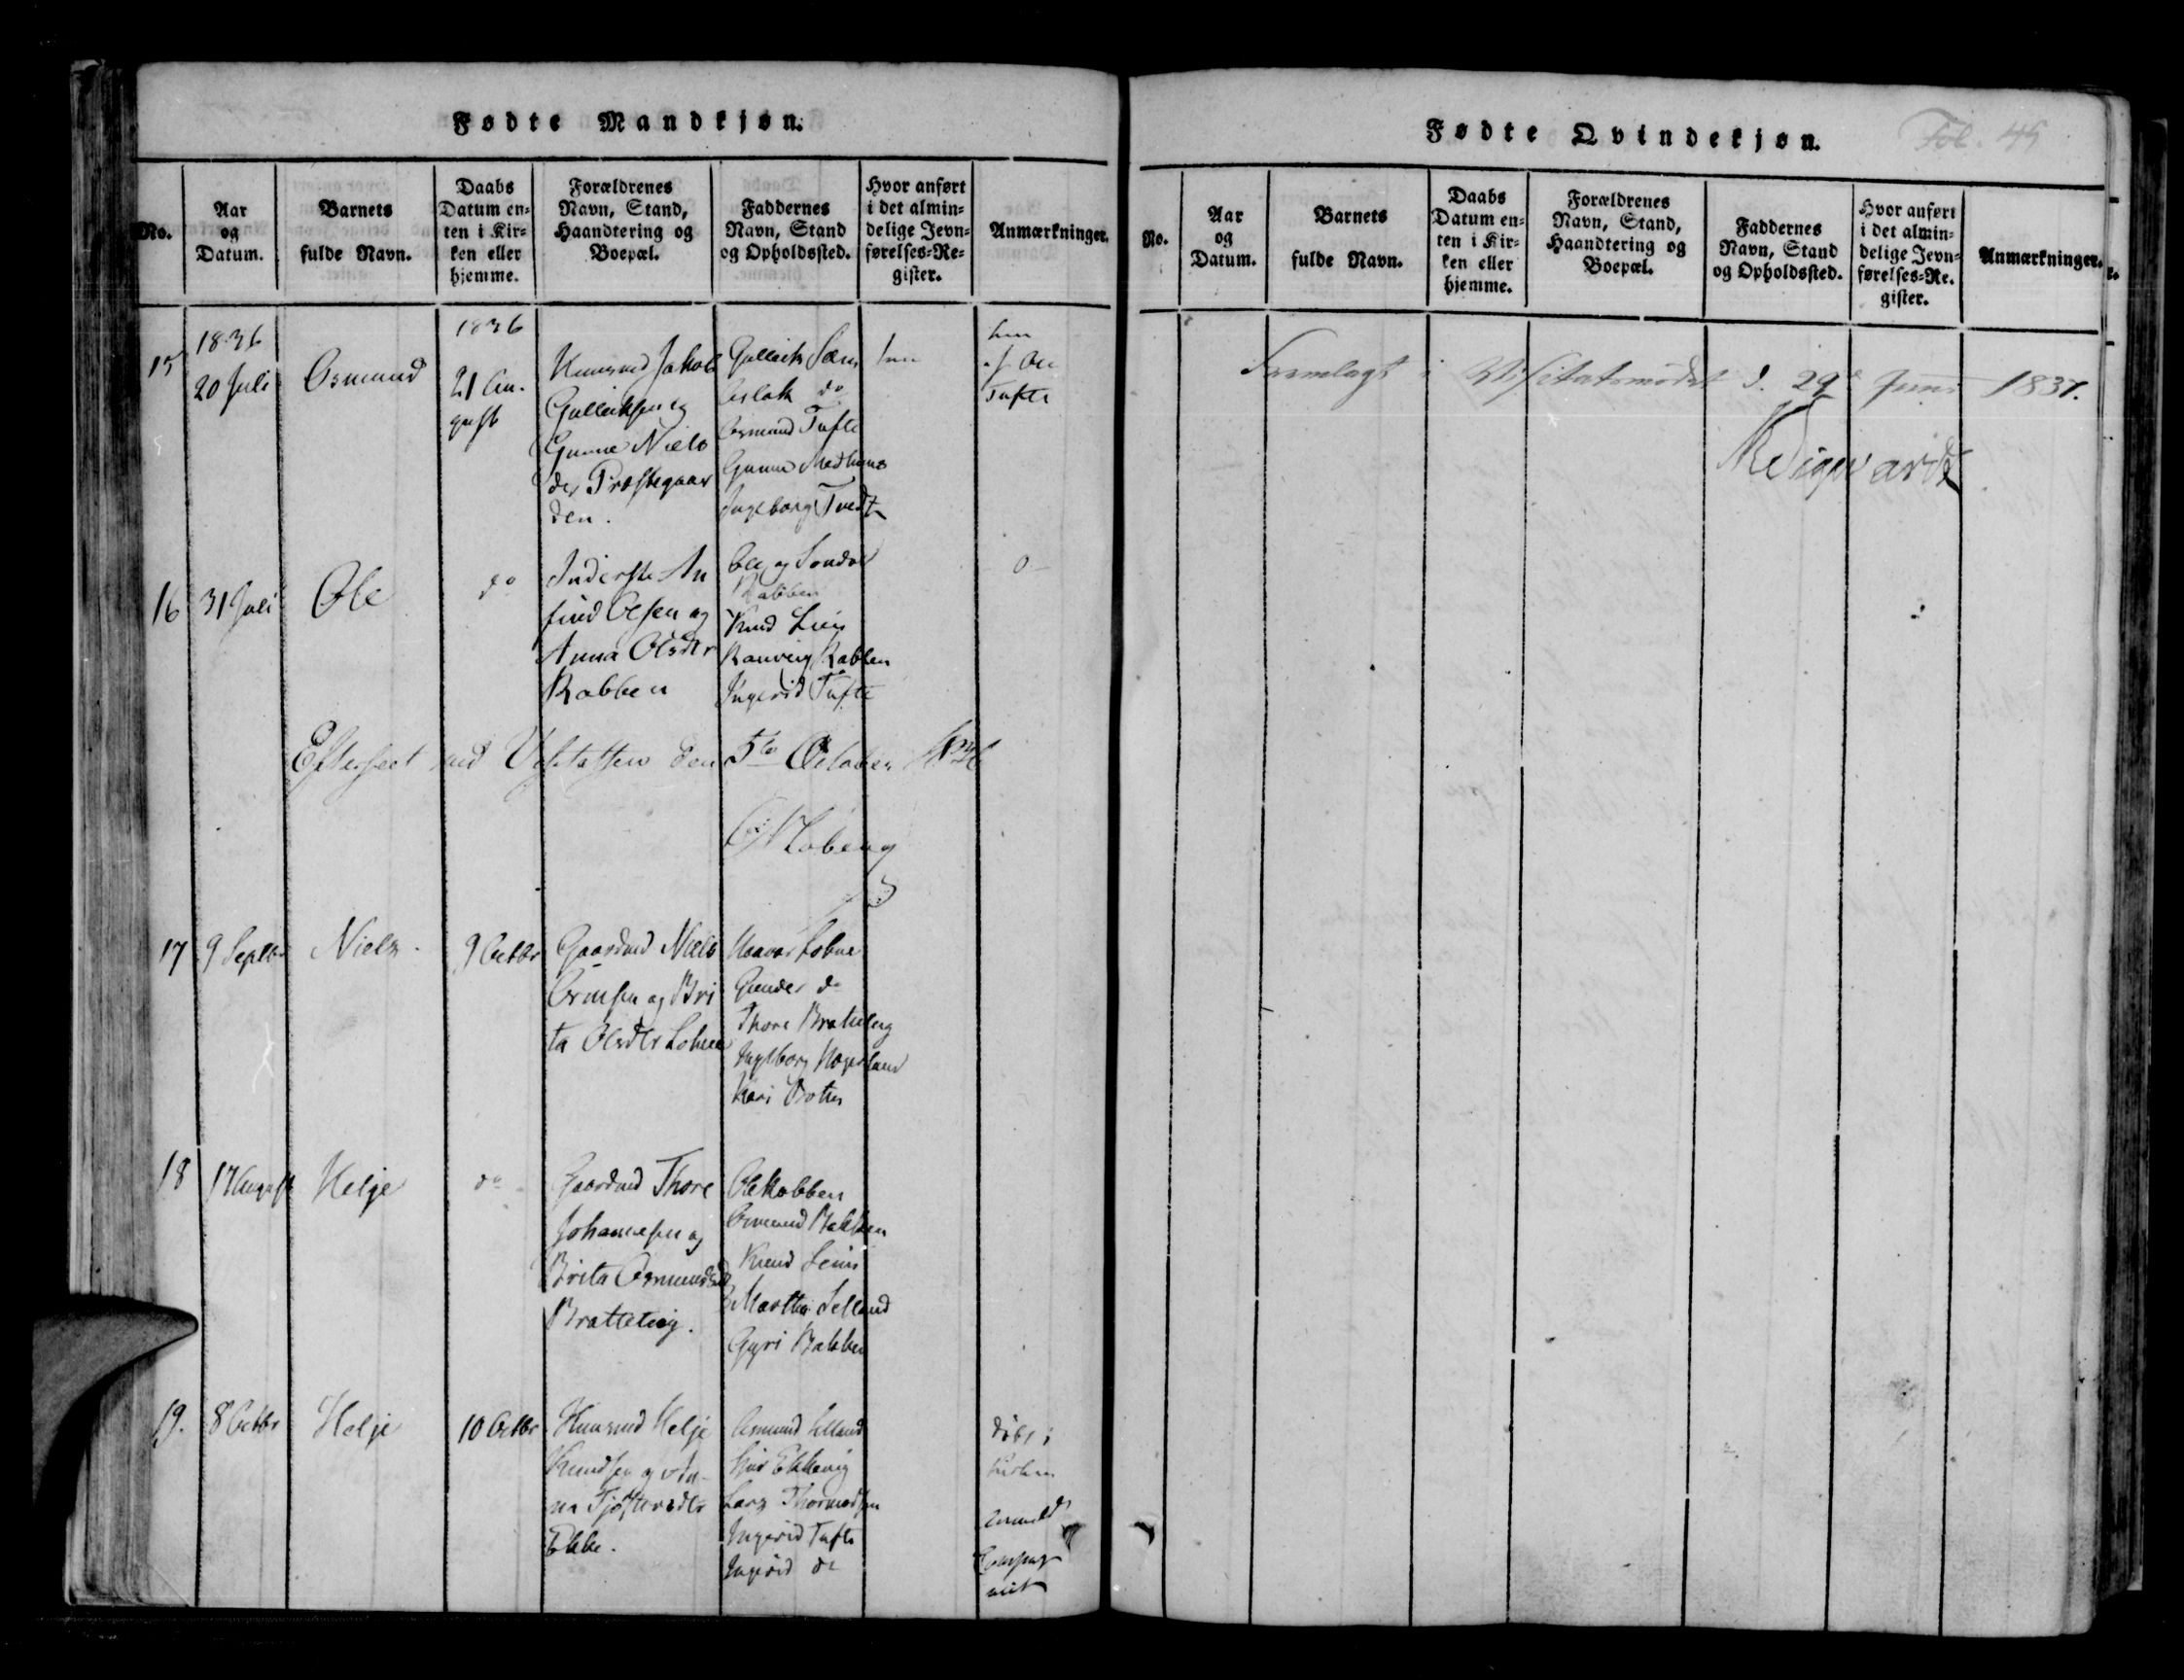 Fødte Mandkjøn.
No.
Aar
og
Datum.
Barnets
fulde Navn.
Daabs
Datum en-
ten i Kir-
ken eller
hjemme.
Forældrenes
Navn, Stand,
Haandtering og
Boepæl.
Faddernes
Navn, Stand
og Opholdssted.
Hvor anført
i det almin-
delige Jevn-
førelses-Re-
gister.
Anmærkninger.
15
1836
20 Juli
Osmund
1836
21 Au-
gust
Huusmd Jakob
Gulleiksen og
Gunne Niels
der Præstegaar
den.
Gulleik
Aslak do
Osmund Tufte
Gunne
Ingeborg Tvedt
Tufte
16
31 Juli
Ole
do
Inderste An
find Olsen og
Anna Olsdtr
Rabben
Ole og
Rabben
Knud Lien
Ranveig Rabben
Ingerid Tufte
0
Efterseet ved Visitatsen den 5te October 1836
17
9 Septbr
Niels.
9 Octbr
Gaardmd Niels
Ormsen og Bri
ta Olsdtr Lohne
Haavar Lohne
Gunder do
Thore Bratteteig
Ingeborg
Kari
18
17 August
Helje
do
Gaardmd Thore
Johannesen og
Brita Osmundsdtr
Bratteteig.
Ole Rabben
Osmund Bakken
Knud Lien
Martha Selland
Gyri Bakken
19.
8 Octbr
Helje
10 Octbr
Huusmd Helje
Knudsen og An-
na Tjøstersdtr
Ekke.
Osmund Selland
Lars Thormodsen
Ingerid Tufte
Ingerid do
døbt i
Kirken
Fødte Qvindekjøn.
Fol. 45
No.
Aar
og
Datum.
Barnets
fulde Navn.
Daabs
Datum en-
ten i Kir-
ken eller
hjemme.
Forældrenes
Navn, Stand,
Haandtering og
Boepæl.
Faddernes
Navn, Stand
og Opholdssted.
Hvor anført
i det almin-
delige Jevn-
førelses-Re-
gister.
Anmærkninger.
Fremlagt i Visitatsmødet d. 29de Juni 1837.